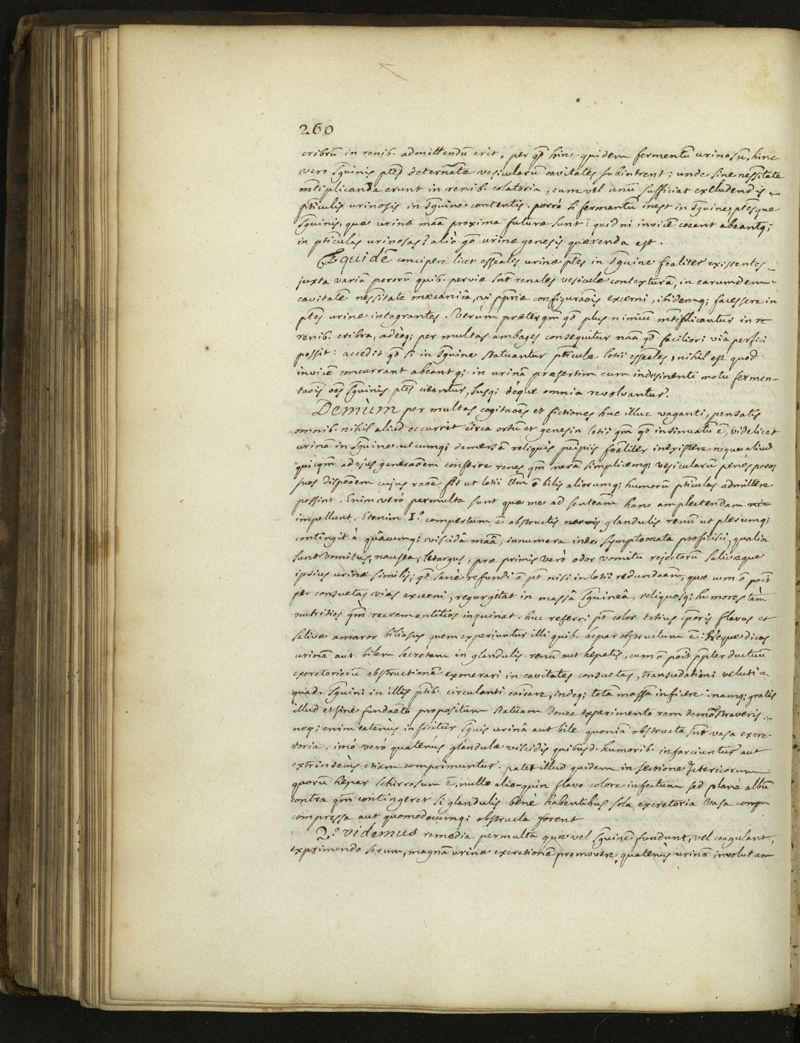 260
cribrũ in renib. admittendũ erit, per qđ hinc quidem fermentũ urinosũ, hinc
vero sguinis ptes determate vesicularũ cavitates subintrent; unde sine nessitate
mtiplicanda erunt in renib. colatoria, cum vel unũ sufficiat excludendis
pticulis urinosis in sguine contentis. porro si fermentũ inest in sguine, ptesque
sguinis, quæ urinæ maã proxima futuræ sunt: quid ni invicẽ coeant abeantq;
in pticulas urinosas? aliò gõ urinæ genesis querenda est.
Equidẽ concipere licet essẽalis urinæ ptes in sguine foãliter existentes
juxta variã pororũ quib. perviæ snt renales vesiculæ contexturã, in earumdem
cavitate nessitate mecanicâ, configuraõis excerni, itidemq; facessere in
ptes urinæ integrantes. Verùm præterqm qđ plus nimiũ mtiplicantur in
renib. cribra, adeoq; per multas ambages consequitur maã qđ faciliori viã perfici
possit: accedit qđ si in sguine statuantur pticulæ lotii essẽales, nihil est quod
invicẽ concurrant abeantq; in urinã præsertim cum indesinenti motu fermen-
taõis oẽs sguinis ptes cieantur, susq; deque omnia revolvantur.
Demùm per multas cogitaões et fictiones huc illuc vaganti, pensatis
omnib. nihil aliud occurrit circa ortũ et genesin lotii qm qđ insinuatũ ẽ, videlicet
urinã in sguine utcumq; demersã reliquis foãliter inexistere neque aliud
quicqm ad ejus generaõem conferre renes qm narã simplicemq; vesicularũ penes poros
suos dispoõem cujus raõe fit ut lotii tm õ bilis aliorumq; humorũ pticulas admittere
possint. Enim verò permulta sunt quæ me ad sentẽam hanc amplectendam
impellunt. Etenim 1.º compertum ẽ obstructis glandulis renũ ut plerumq;
contingit à quâcumq; viscidâ maã, innumera inde symptomata proficisci, qualia
sunt vomitus, nausea, letargus, præ primis verò odor vomitu rejectorũ salivæque
ipsius urinæ similis; qđ sanè refundi õ pt nisi in lotii redundaãm, quæ cum õ poit
per consuetas vias excerni, regurgitat in massã sguineã, reliquosq; humores tàm
nutritios qm recrementitios inquinat. huc referri pt color totius cporis flavus et
salivæ amaror biliosus quem experiuntur illi quib. hepar obstructum ẽ: Neque dicas
urinã aut bilem secretam in glandulis renũ aut hepatis, cum õ poit ppter ductuũ
excretoriorũ obstructionẽ exonerari in cavitates consuetas, transudationi veluti
quad. sguini in illis ptib. circulanti coirare, indeq; tota massa inficere: namq; gratis
illud et sine fundaẽto propositum statuam donec experimento rem demõstraveris
neq; enim eatenùs inficitur sguis urinã aut bile quoniã obstructa snt vasa excre-
toria. imò verò quatenùs glandulæ viscidis quibusd. humorib. infarciuntur aut
extrinsecùs etiam comprimuntur. patet illud quidem in sectione ictericorum
quorũ hepar schirrosum ẽ, nullo alioquin flavo colore infectum sed plane albũ
contra qm contingeret si glandulis bene habentibus sola excretoria vasa
compressa aut quomodocumq; obstructa forent
2.º videmus remedia permulta quæ vel sguinẽ fundunt, vel coagulant,
exprimendo serum, magnã urinæ excretionẽ promovere, quatenùs urinã involutam